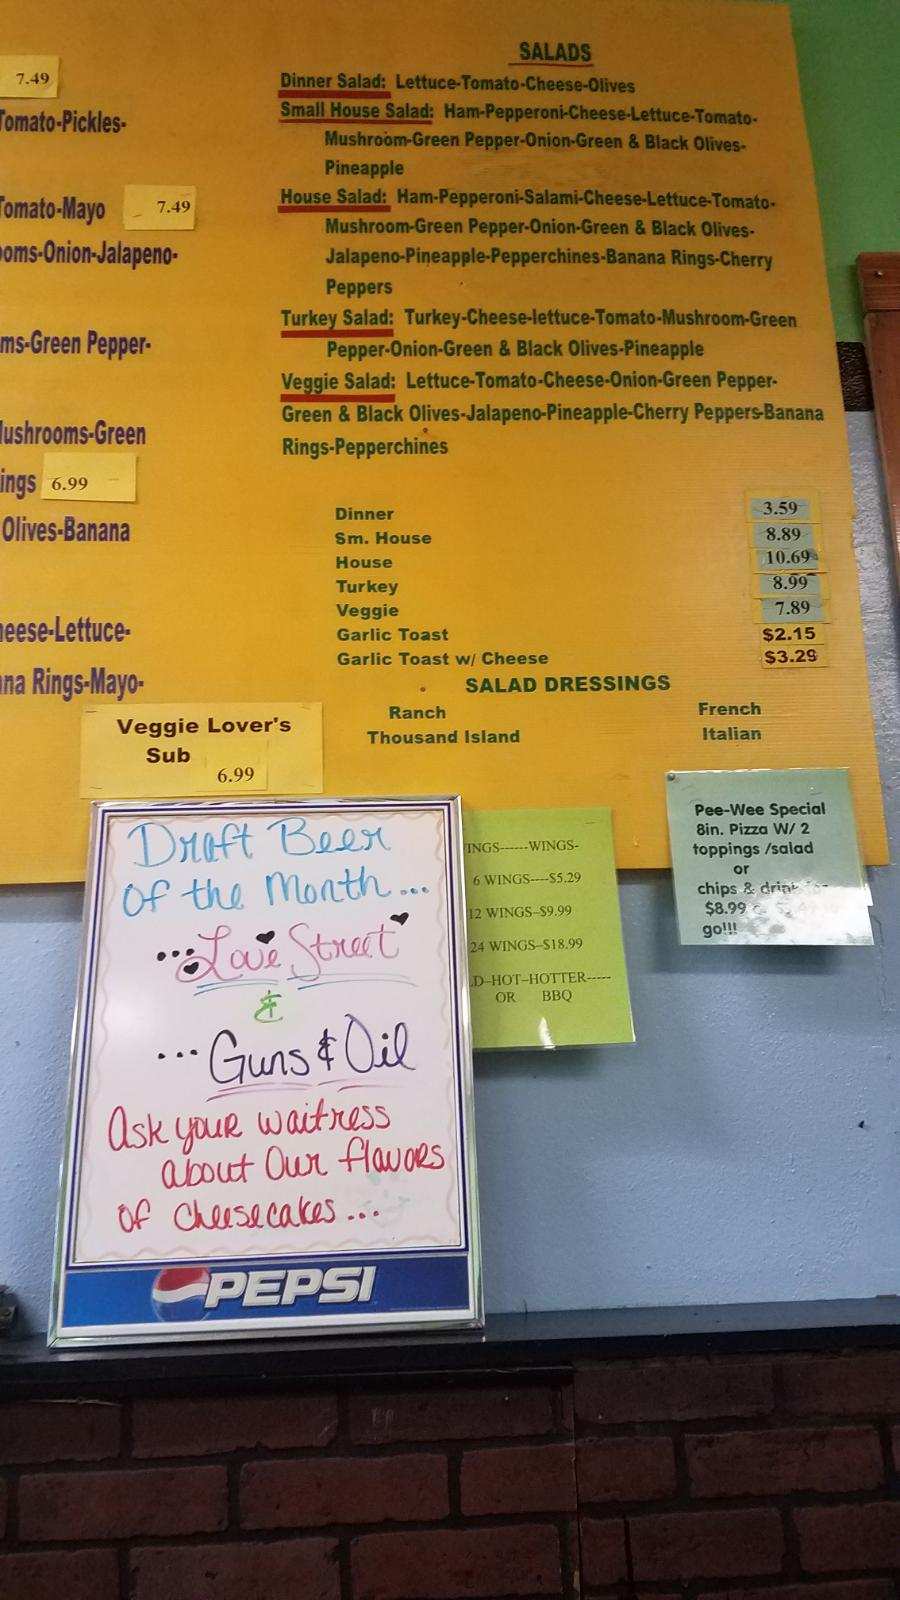 7.49
Tomato-Pickles-
Tomato-Mayo 7.49
ooms-Onion-Jalapeno-
ms-Green Pepper-
Mushrooms-Green
ings 6.99
Olives-Banana
heese-Lettuce-
na Rings-Mayo-
Veggie Lover's
Sub
6.99
SALADS
Dinner Salad: Lettuce-Tomato-Cheese-Olives
Small House Salad: Ham-Pepperoni-Cheese-Lettuce-Tomato-
Mushroom-Green Pepper-Onion-Green & Black Olives-
Pineapple
House Salad: Ham-Pepperoni-Salami-Cheese-Lettuce-Tomato-
Mushroom-Green Pepper-Onion-Green & Black Olives-
Jalapeno-Pineapple-Pepperchines-Banana Rings-Cherry
Peppers
Turkey Salad: Turkey-Cheese-lettuce-Tomato-Mushroom-Green
Pepper-Onion-Green & Black Olives-Pineapple
Veggie Salad: Lettuce-Tomato-Cheese-Onion-Green Pepper-
Green & Black Olives-Jalapeno-Pineapple-Cherry Peppers-Banana
Rings-Pepperchines
Dinner 3.59
Sm. House 8.89
House 10.69
Turkey 8.99
Veggie 7.89
Garlic Toast $2.15
Garlic Toast w/ Cheese $3.29
SALAD DRESSINGS
Ranch French
Thousand Island Italian
Draft Beer
Of the Month...
...Love Street
&
...Guns & Oil
Ask your waitress
about Our flavors
of cheesecakes...
PEPSI
INGS------WINGS-
6 WINGS----$5.29
12 WINGS–$9.99
24 WINGS–$18.99
LD–HOT–HOTTER-----
OR BBQ
Pee-Wee Special
8in. Pizza W/ 2
toppings /salad
or
chips & drink for
$8.99
go!!!